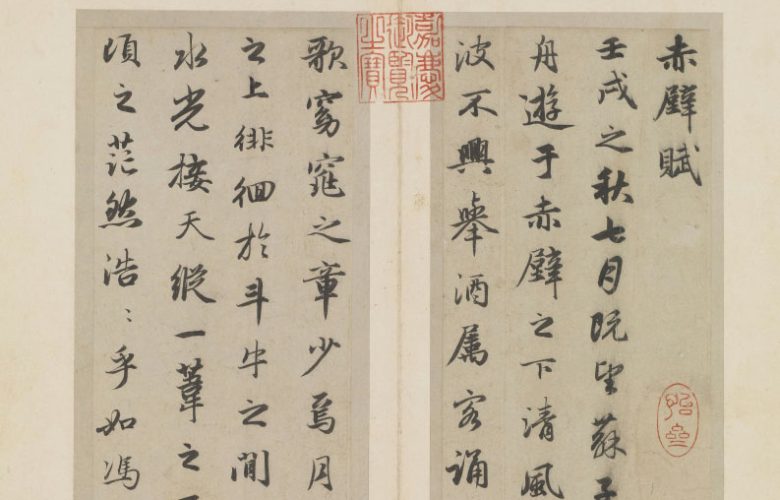 赤壁賦
壬戌之秋七月既望蘇子
舟遊于赤壁之下清風
波不興舉酒屬客誦
嘉慶御覽之寶
歌窈窕之章少焉月
之上徘徊於斗牛之間
水光接天縱一葦之
頃之茫然浩〻乎如馮